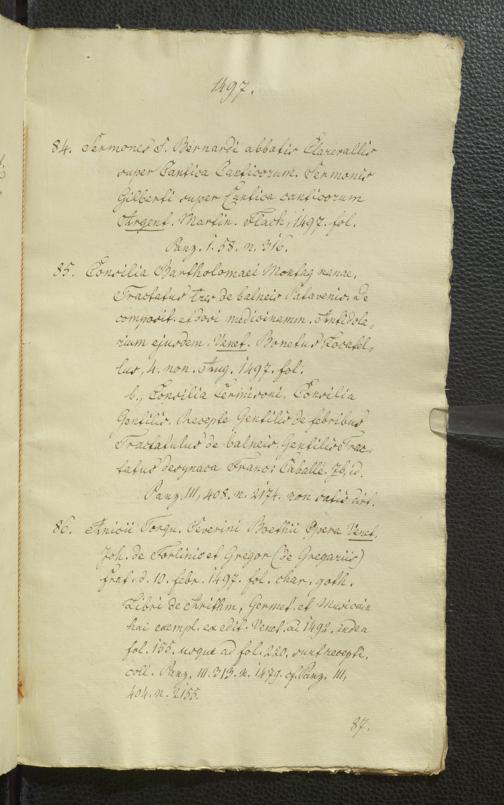 1497.
84. Sermones S. Bernardi abbatis Clarevallis
super Cantica Canticorum. Sermonis
Gilberti super Cantica canticorum
Argent. Martin. Flach, 1497. fol.
Panz. I. 58. n. 316.
85. Consilia Bartholomaei Montagnanae,
Tractatus tres de balneis Patavenis. De
composit. et dosi medicinarum. Antidota-
rium ejusdem. Venet. Bonetus Locatel-
lus, 4. non. Aug. 1497. fol.
b, Consilia Cermisoni, Consilia
Gentilis. Recepte Gentilis de febribus
Tractatulus de balneis. Gentilis Trac-
tatus Franc: Caballi. Ib, id.
Panz. III, 408. n. 2174. non satis dist.
86. Anicii Torqu. Severini Boethii Opera Venet.
Joh. de Forlinio et Gregor (de Gregariis)
frat. d. 10. febr. 1497. fol. char. goth.
Libri de Arithm, Geomet. et Musica in
hoc exempl. ex edit. Venet. ai 1492. inde a
fol. 155. usque ad fol. 220. sunt recepti.
coll. Panz. III. 313. n. 1479. cf. Panz. III,
404. n. 2155.
87.